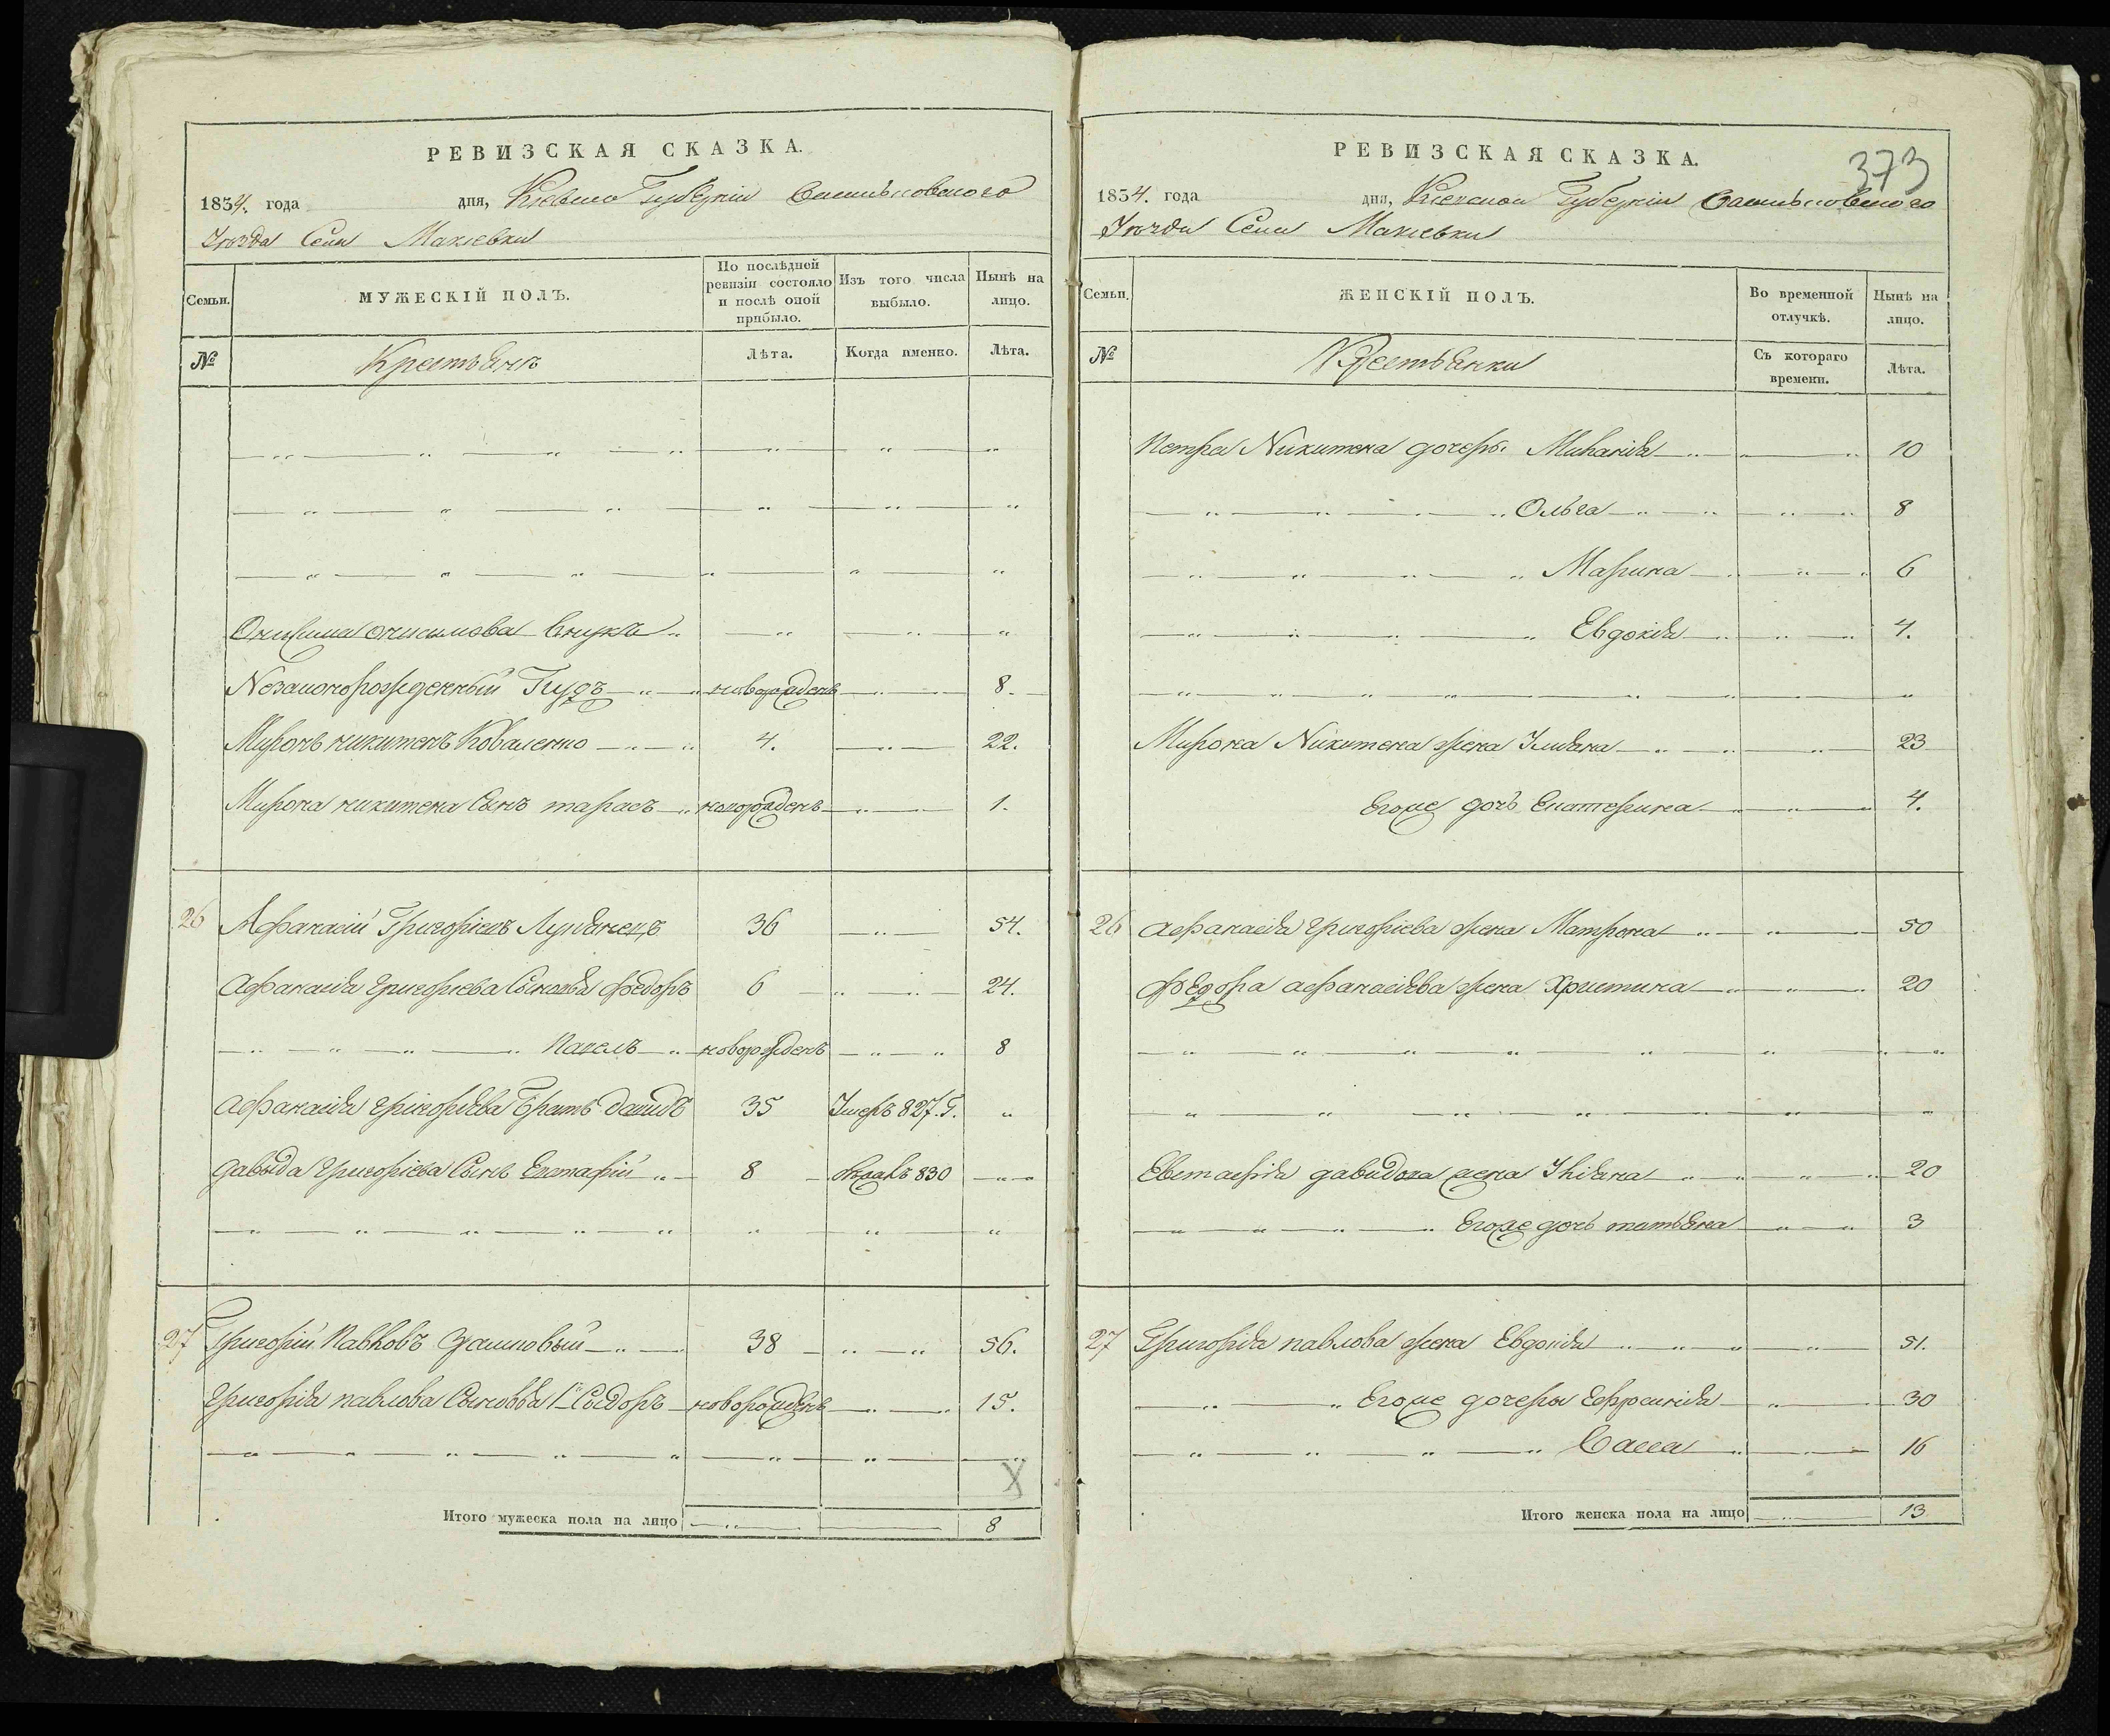 РЕВИЗСКАЯ СКАЗКА.
1834. года дня, Губерніи
Уѣзда Села Макіевки
Семьи. МУЖЕСКІЙ ПОЛЪ. По послѣдней ревизіи состояло и послѣ оной прибыло. Изъ того числа выбыло. Нынѣ на лицо.
№ Крестьянъ Лѣта. Когда именно. Лѣта.
внукъ
Незаконорожденный 8.
Миронъ никитенъ Коваленко 4. 22.
Мирона никитена Сынъ тарасъ 1.
26 Афанасій Григоріевъ 36 54.
Афанасія григоріева Сыновья федоръ 6 24.
Павелъ новорожденъ 8
Афанасія григоріева Братъ давидъ 35 Умеръ 827. Г.
давыда григоріева Сынъ 8 830
27 Григорій Павловъ 38 56.
григорія павлова Сыновья 1й Сыдоръ новорожденъ 15.
Итого мужеска пола на лицо 8
РЕВИЗСКАЯ СКАЗКА.
373
1834. года дня, Кіевской Губерніи
Уѣзда Села Макіевки
Семьи. ЖЕНСКІЙ ПОЛЪ. Во временной отлучкѣ. Нынѣ на лицо.
№ Крестьянки Съ котораго времени. Лѣта.
Петра Никитена дочеры 10
Ольга 8
Марина 6
Евдокія 4.
Мирона Никитена жена 23
Егоже дочь Екатерина 4.
26 афанасія григоріева жена Матрона 50
федора афанасіева жена Христина 20
давидова жена 20
Егоже дочь татьяна 3
27 Григорія павлова жена Евдокія 51.
Егоже дочеры Ефросинія 30
16
Итого женска пола на лицо 13